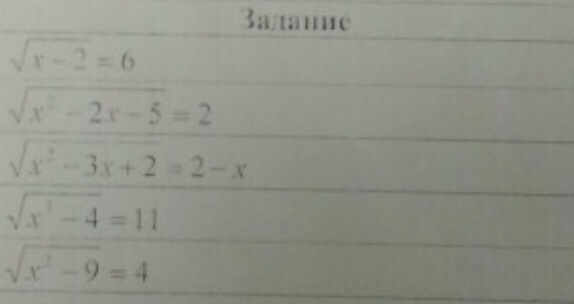 Задание
√x − 2 = 6
√x² − 2x − 5 = 2
√x² − 3x + 2 = 2 − x
√x³ − 4 = 11
√x² − 9 = 4